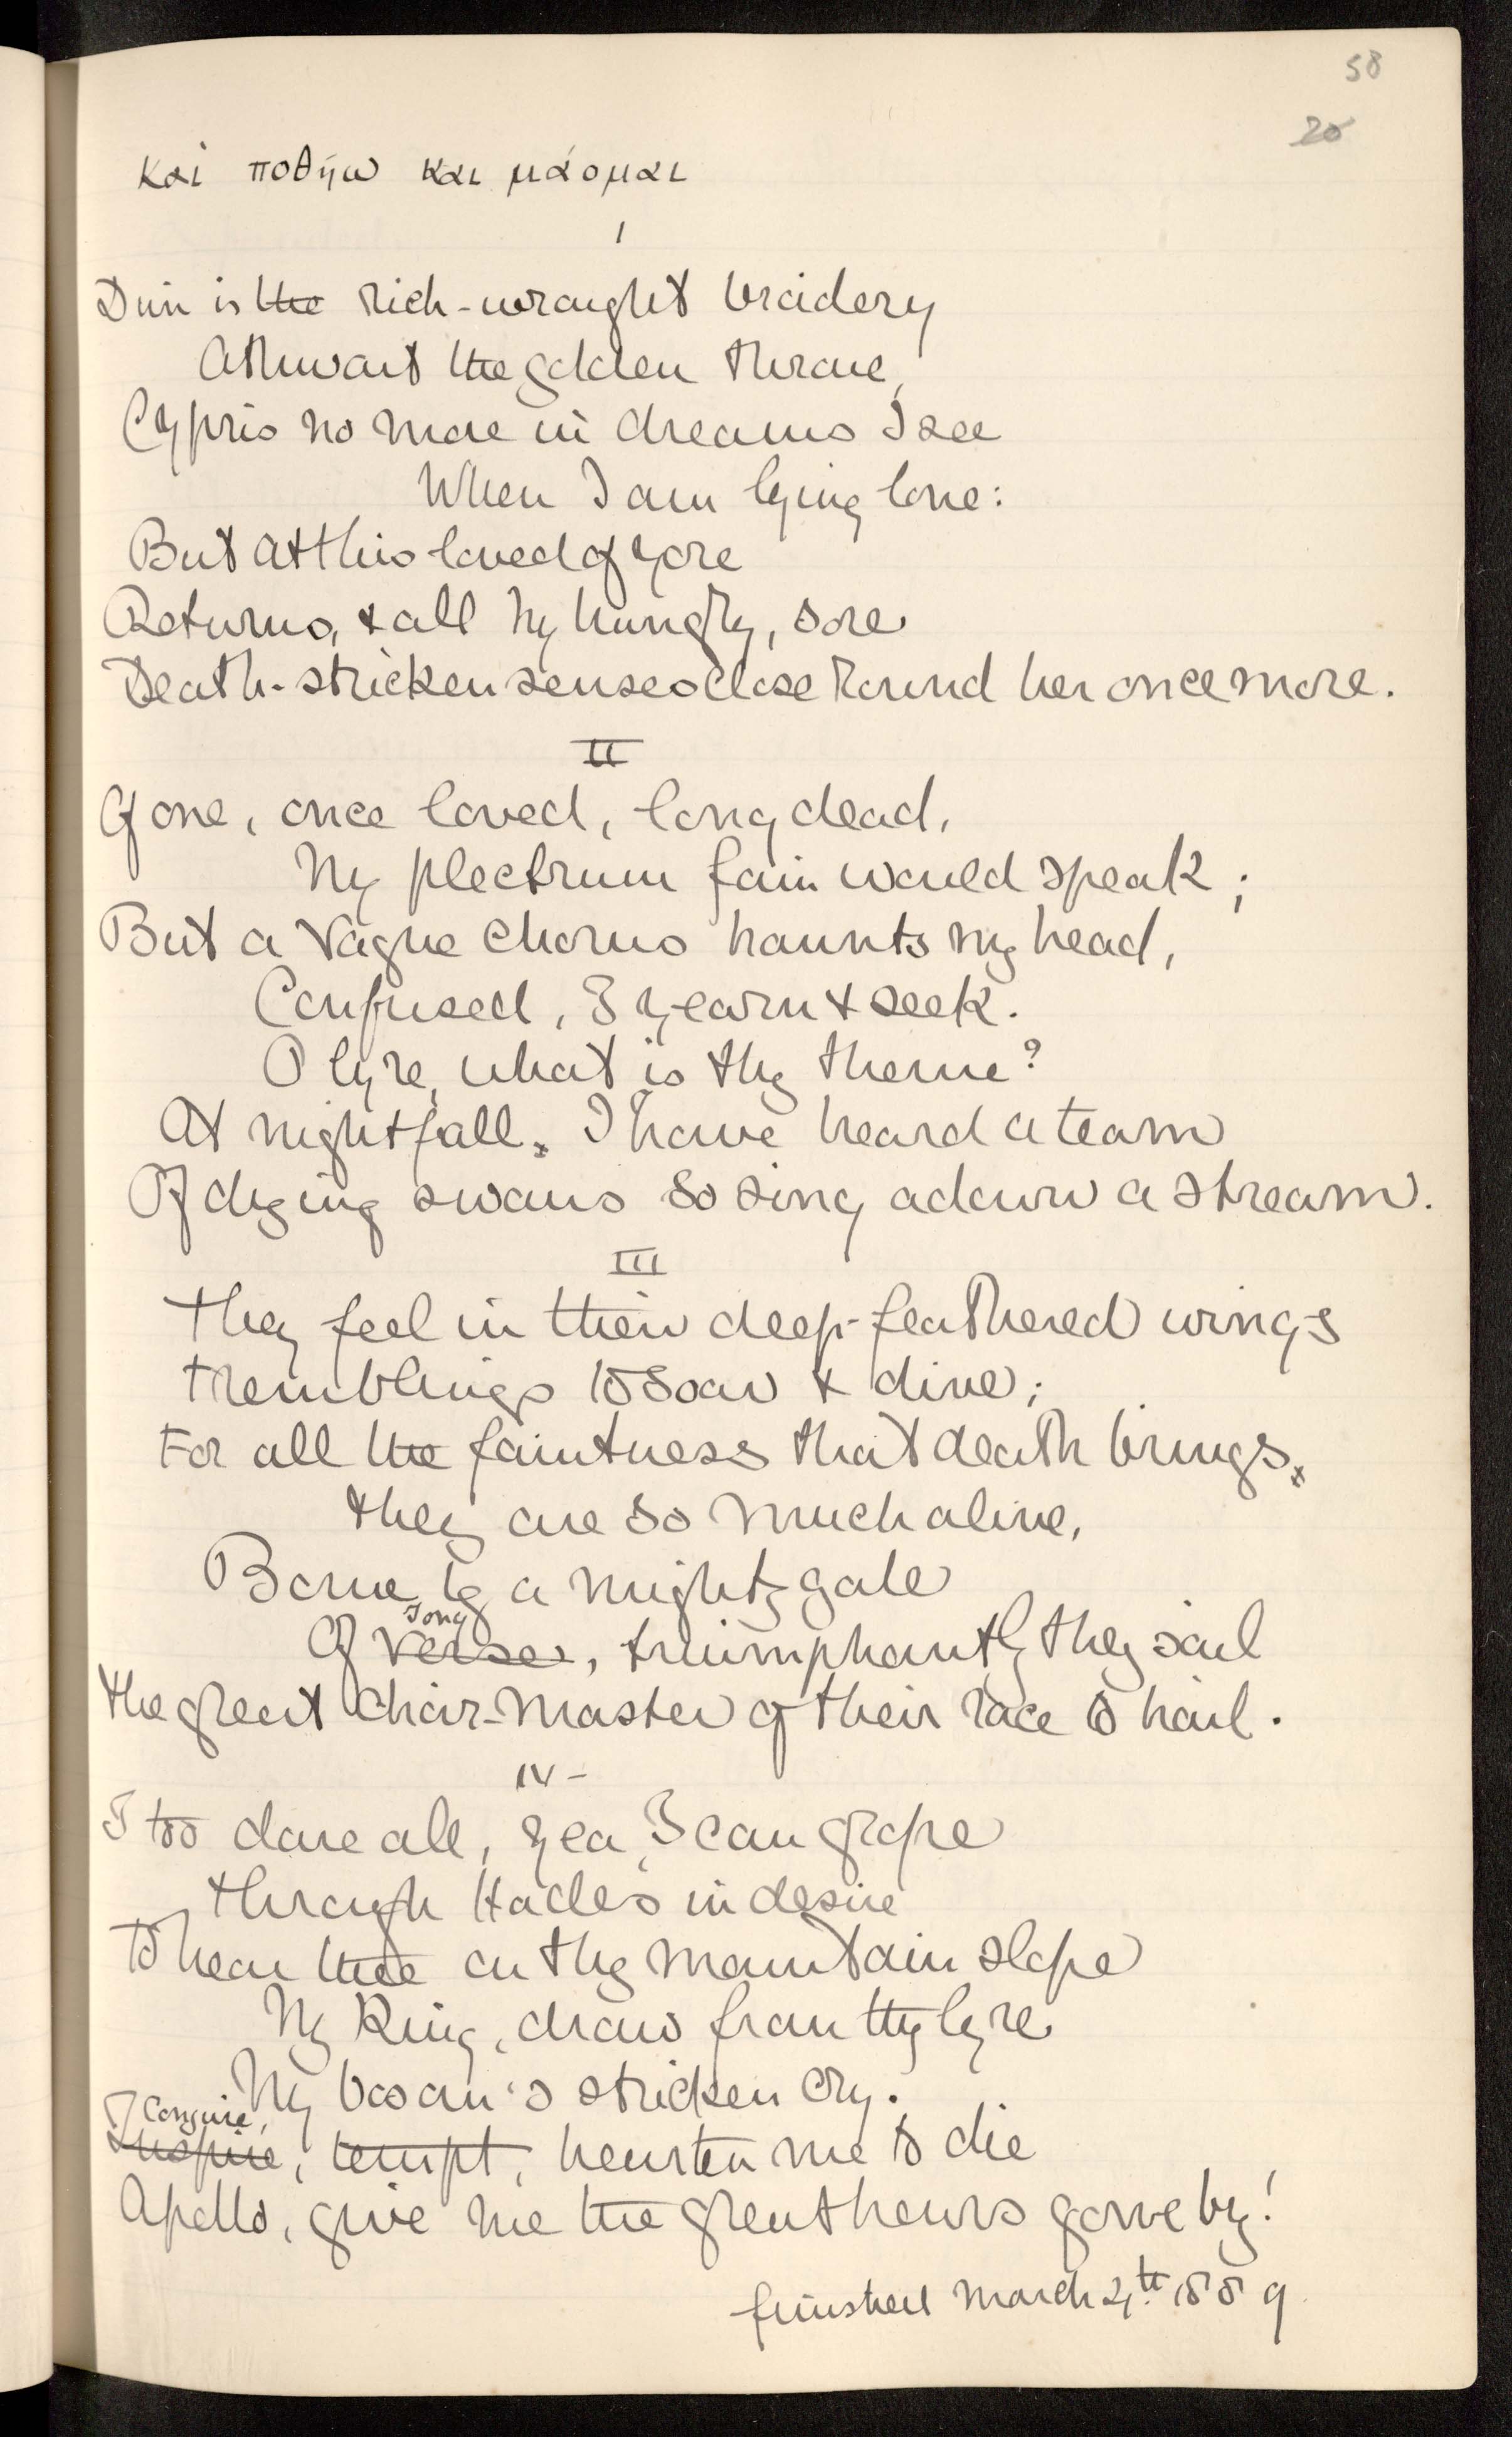 58
20
Καὶ ποθήω και μάομαι
I
Dim is the rich-wrought braidery
Athwart the golden throne,
Cypris no more in dreams I see
When I am lying lone:
But Atthis loved of yore
Returns, & all my hungry, sore
Death-stricken senses close round her once more.
II
Of one, once loved, long dead,
My plectrum fain would speak;
But a vague chorus haunts my head,
Confused, I yearn & seek.
O lyre, what is thy theme?
At nightfall, I have heard a team
Of dying swans so sing adown a stream.
III
They feel in their deep-feathered wings
tremblings to soar & dive;
For all the faintness that death brings,
they are so much alive,
Borne by a mighty gale
song
Of verse, triumphantly they sail
the great choir-master of their race to hail.
IV -
I too dare all, yea, I can grope
through Hades in desire
To hear thee on thy mountain slope
My King, draw from thy lyre
My bosom's stricken cry.
I Conjure,
Inspire, tempt, hearten me to die
Apollo, give me the great hours gone by!
finished March 4th 1889